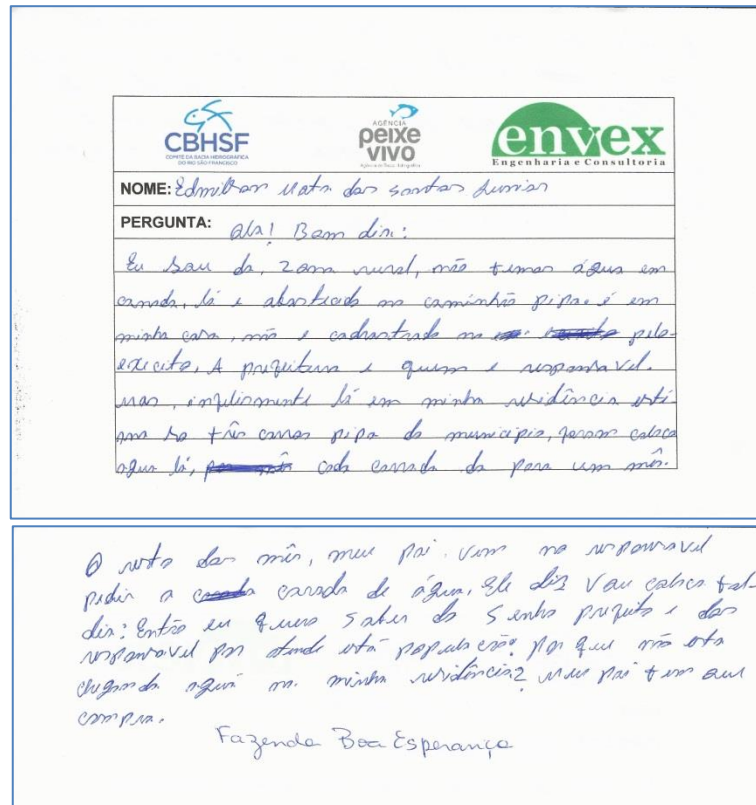 CBHSF
COMITÊ DA BACIA HIDROGRÁFICA
DO RIO SÃO FRANCISCO
AGÊNCIA
peixe
vivo
envex
Engenharia e Consultoria
NOME: Edmilson Mata dos Santos Junior
PERGUNTA: Ola! Bom dia:
Eu sou da, zona rural, não temos água em
canada, lá e abasticado no caminhão pipa. é em
minha casa, não e cadrastrado no pelo
exercito, A prefeitura e quem e responsavel.
mas, infelismente lá em minha residência esti
ano so três carros pipa do municipio, foram coloca
agua lá, cada carrada da para um mês.
O resto dos mês, meu pai vem no responsavel
pedir a carrada de água, Ele diz vou coloca tal
dia: Então eu quero saber do Senho prefeito e dos
responsavel por atende está população? por que não esta
chegando agua na minha residência? meu pai tem que
compra.
Fazenda Boa Esperança